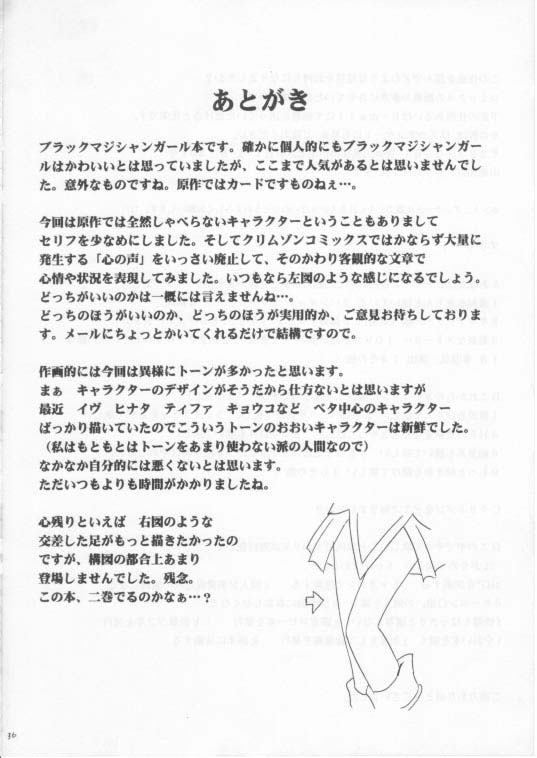 あとがき
ブラックマジシャンガール本です。確かに個人的にもブラックマジシャンガー
ルはかわいいとは思っていましたが、ここまで人気があるとは思いませんでし
た。意外なものですね。原作ではカードですものねぇ…。
今回は原作では全然しゃべらないキャラクターということもありまして
セリフを少なめにしました。そしてクリムゾンコミックスではかならず大量に
発生する「心の声」をいっさい廃止して、そのかわり客観的な文章で
心情や状況を表現してみました。いつもなら左図のような感じになるでしょう。
どっちがいいのかは一概には言えませんね…。
どっちのほうがいいのか、どっちのほうが実用的か、ご意見お待ちしておりま
す。メールにちょっとかいてくれるだけで結構ですので。
作画的には今回は異様にトーンが多かったと思います。
まぁ　キャラクターのデザインがそうだから仕方ないとは思いますが
最近　イヴ　ヒナタ　ティファ　キョウコなど　ベタ中心のキャラクター
ばっかり描いていたのでこういうトーンのおおいキャラクターは新鮮でした。
（私はもともとはトーンをあまり使わない派の人間なので）
なかなか自分的には悪くないとは思います。
ただいつもよりも時間がかかりましたね。
心残りといえば　右図のような
交差した足がもっと描きたかったの
ですが、構図の都合上あまり
登場しませんでした。残念。
この本、二巻でるのかなぁ…？
36